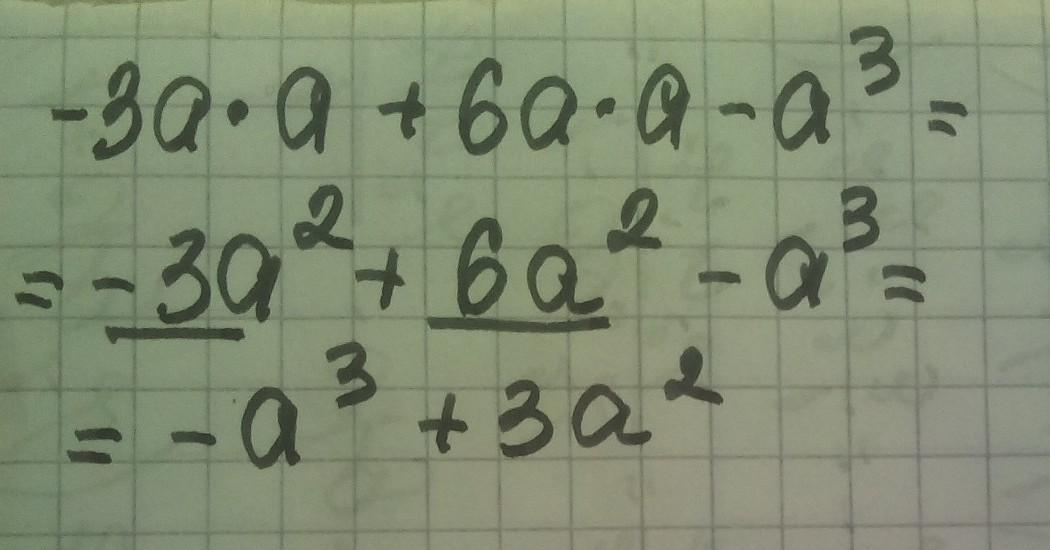 -3a·a + 6a·a - a³ =
= -3a² + 6a² - a³ =
= -a³ + 3a²